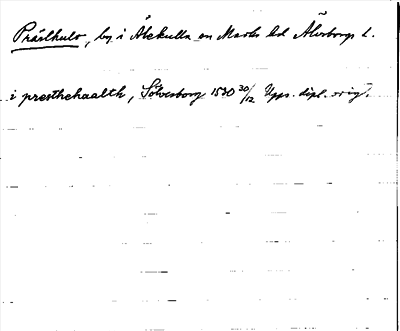 Prästhult, by i Älekulla sn Marks hd Älvsborgs l.
i presthehaalth, Sölvesborg 1530 30/12 Upps. dipl. orig.